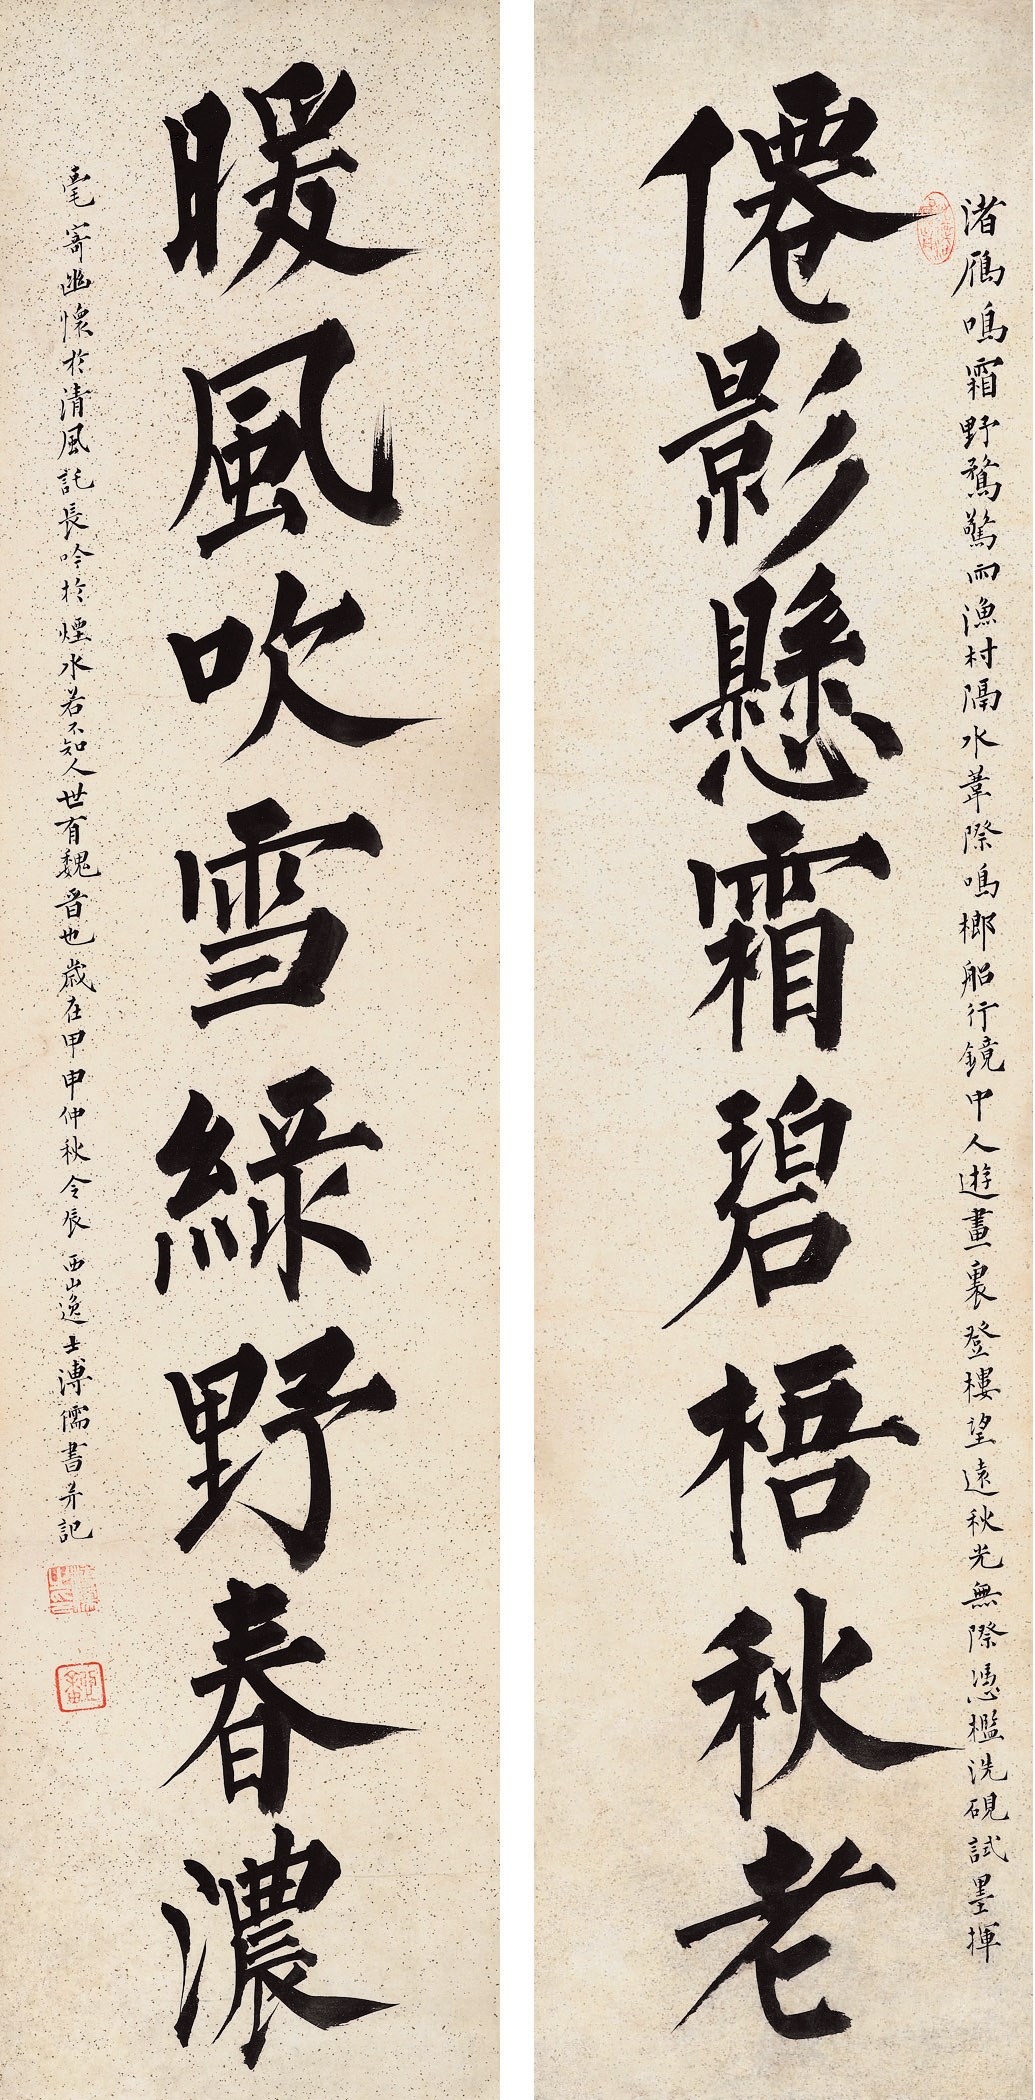 渚鴈鳴霜野鶩驚雨漁村隔水葦際鳴榔船行鏡中人遊畫裏登樓望遠秋光無際憑檻洗硯試墨揮
僊影懸霜碧梧秋老
暖風吹雪綠野春濃
毫寄幽懷於清風託長吟於煙水若不知人世有魏晉也歲在甲申仲秋令辰西山逸士溥儒書并記